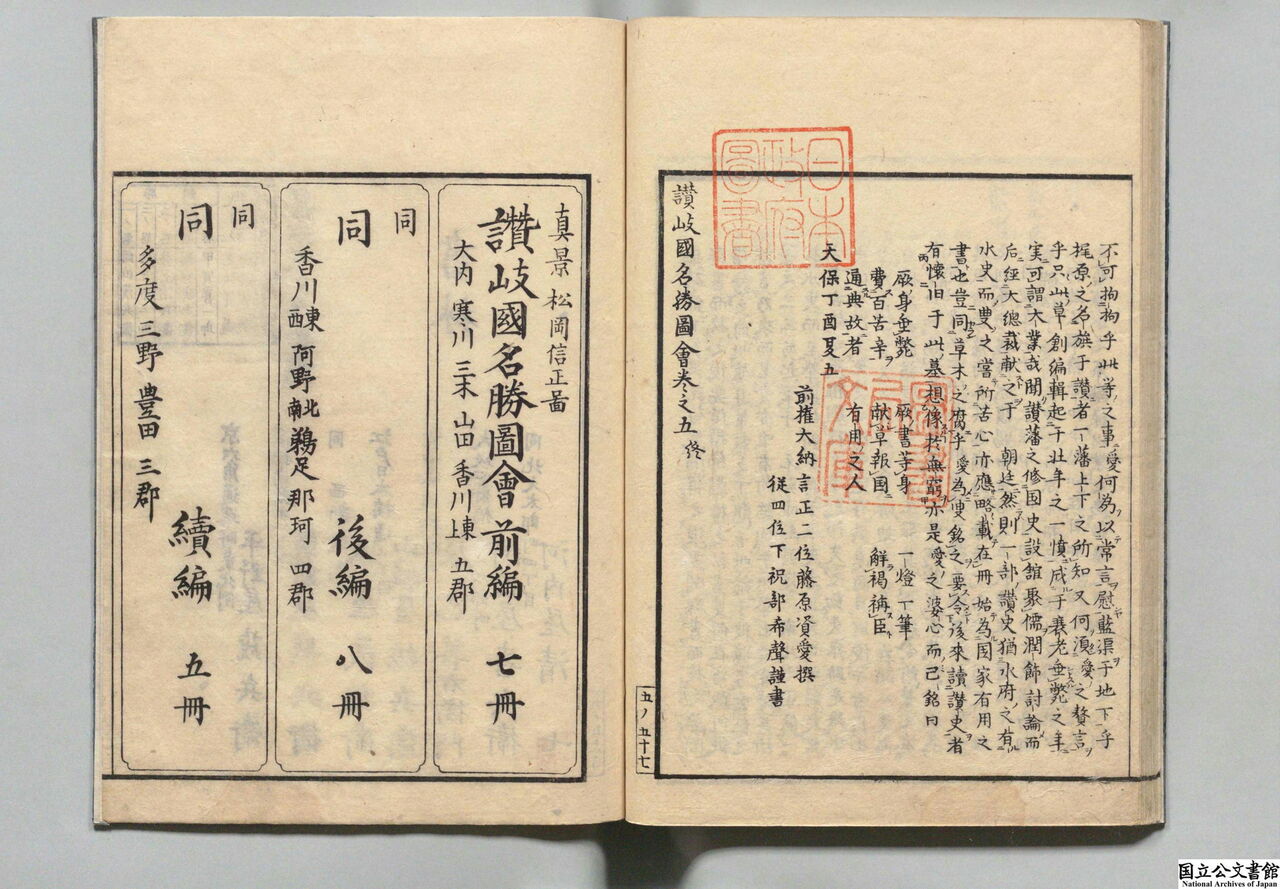 不可拘拘乎此等之事愛何為以常言慰藍渠于地下乎
梶原之名旗于讃者一藩上下之所知又何須愛之贅言
乎只此草創編輯起于壮年之一憤成于衰老垂斃之年
実可謂大業哉聞讃藩之修国史設館聚儒潤飾討論而
后経大総裁献之于 朝廷然則一部讃史猶水府之有
水史而豊之当所苦心亦應略載在冊 始為国家有用之
書也豈同草木之腐乎愛為叟銘之要令後來讀讃史者
有懐旧于此墓想像於無窮亦是愛之婆心而已銘曰
厥身垂斃 厥書等身 一燈一筆
費百苦辛 献草報国 解褐稱臣
通典故者 有用之人
天保丁酉夏五
前權大納言正二位藤原資愛撰
従四位下祝部希聲謹書
讃岐國名勝圖會巻之五 終
五ノ五十七
日本
政府
圖書
真景 松岡信正圖
讃岐國名勝圖會前編 七冊
大内 寒川 三木 山田 香川東 五郡
同
同 後編 八冊
香川東西 阿野北南 鵜足 那珂 四郡
同
同 續編 五冊
多度 三野 豊田 三郡
国立公文書館
National Archives of Japan